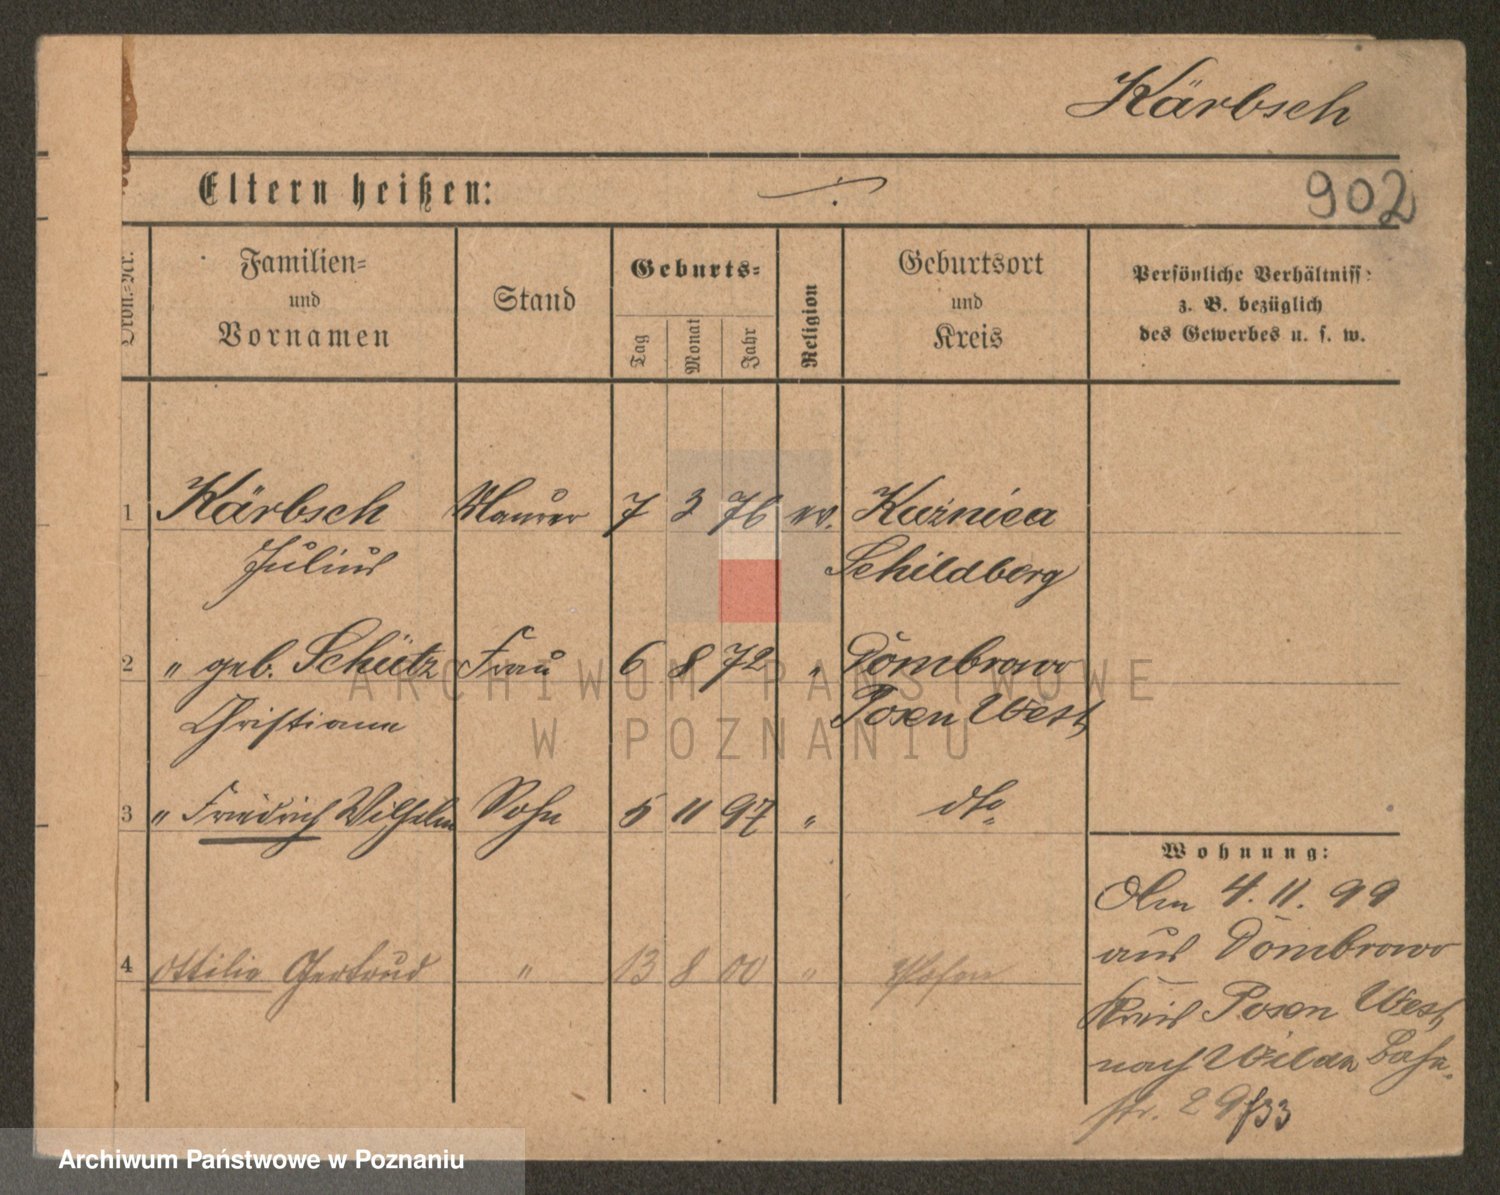 Kärbsch
Eltern heißen:
902
Ordn.-Nr.
Familien-
und
Vornamen
Stand
Geburts-
Tag
Monat
Jahr
Religion
Geburtsort
und
Kreis
Persönliche Verhältniss:
z. B. bezüglich
des Gewerbes u. s. w.
1 Kärbsch Maurer 7 3 76 ev. Kuźnica
Julius Schildberg
2 " geb. Schütz Frau 6 8 72 " Dombrowo
Christiane Posen West
3 " Friedrich Wilhelm Sohn 5 11 97 " dto
4 Ottilie Gertrud " 13 8 00 " Posen
Wohnung:
Am 4.11.99
aus Dombrowo
Kreis Posen West
nach Wilda Bahn-
str. 29/33
ARCHIWUM PAŃSTWOWE
W POZNANIU
Archiwum Państwowe w Poznaniu